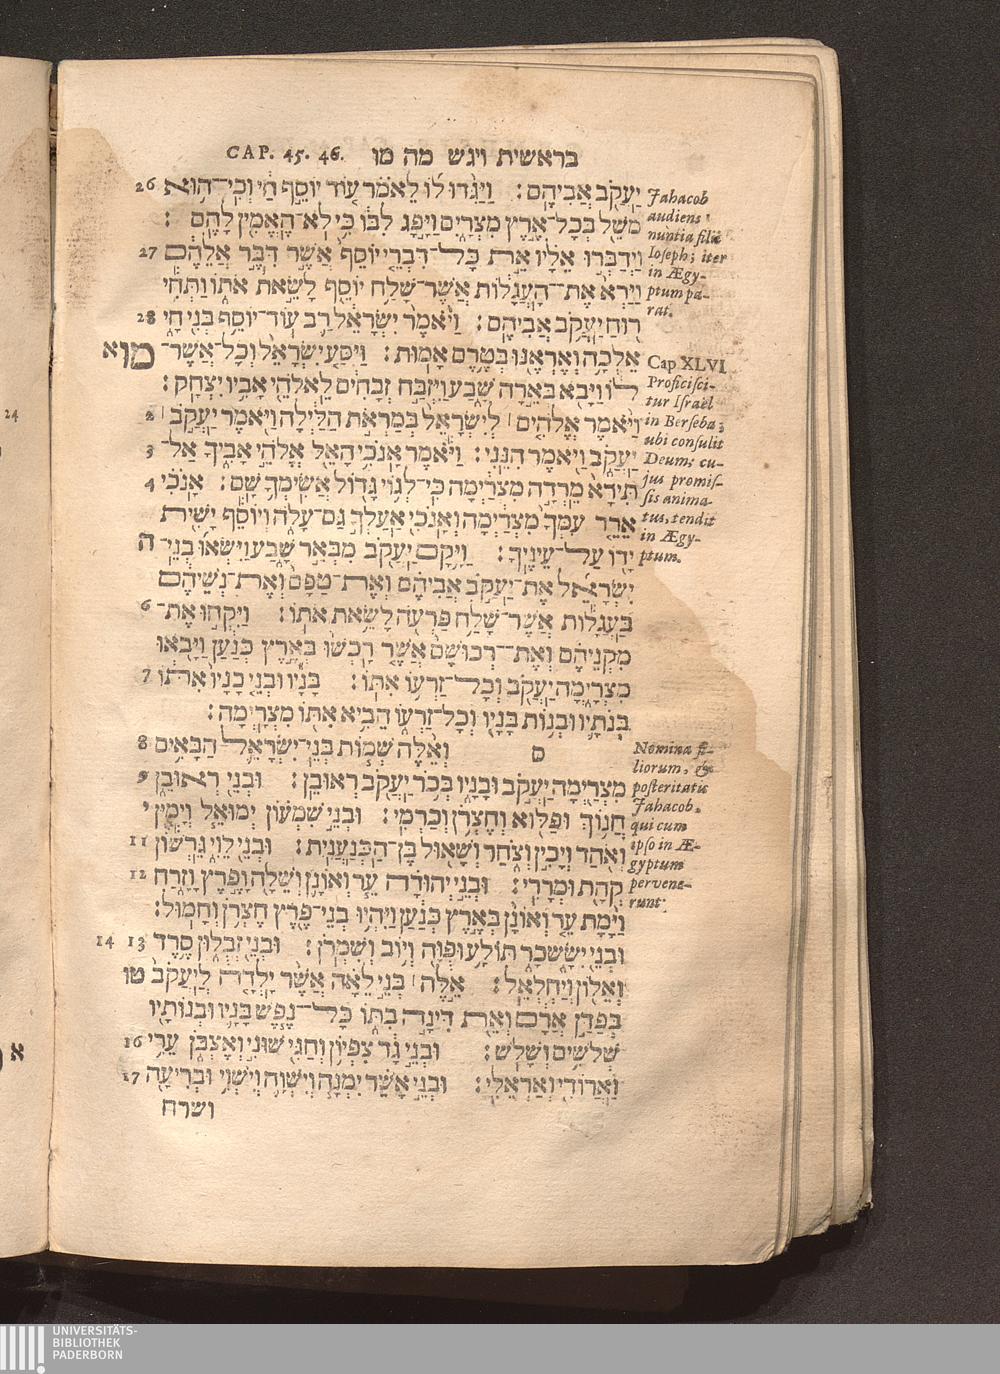 CAP. 45. 46. בראשית ויגש מה מו
יַעֲקֹב אֲבִיהֶם׃ וַיַּגִּדוּ לוֹ לֵאמֹר עוֹד יוֹסֵף חַי וְכִי־הוּא 26
מֹשֵׁל בְּכָל־אֶרֶץ מִצְרָיִם וַיָּפָג לִבּוֹ כִּי לֹא־הֶאֱמִין לָהֶם׃
וַיְדַבְּרוּ אֵלָיו אֵת כָּל־דִּבְרֵי יוֹסֵף אֲשֶׁר דִּבֶּר אֲלֵהֶם 27
וַיַּרְא אֶת־הָעֲגָלוֹת אֲשֶׁר־שָׁלַח יוֹסֵף לָשֵׂאת אֹתוֹ וַתְּחִי
רוּחַ יַעֲקֹב אֲבִיהֶם׃ וַיֹּאמֶר יִשְׂרָאֵל רַב עוֹד־יוֹסֵף בְּנִי חָי 28
אֵלְכָה וְאֶרְאֶנּוּ בְּטֶרֶם אָמוּת׃ וַיִּסַּע יִשְׂרָאֵל וְכָל־אֲשֶׁר־ מו א
לוֹ וַיָּבֹא בְּאֵרָה שָּׁבַע וַיִּזְבַּח זְבָחִים לֵאלֹהֵי אָבִיו יִצְחָק׃
וַיֹּאמֶר אֱלֹהִים ׀ לְיִשְׂרָאֵל בְּמַרְאֹת הַלַּיְלָה וַיֹּאמֶר יַעֲקֹב ׀ 2
יַעֲקֹב וַיֹּאמֶר הִנֵּנִי׃ וַיֹּאמֶר אָנֹכִי הָאֵל אֱלֹהֵי אָבִיךָ אַל־ 3
תִּירָא מֵרְדָה מִצְרַיְמָה כִּי־לְגוֹי גָּדוֹל אֲשִׂימְךָ שָׁם׃ אָנֹכִי 4
אֵרֵד עִמְּךָ מִצְרַיְמָה וְאָנֹכִי אַעַלְךָ גַם־עָלֹה וְיוֹסֵף יָשִׁית
יָדוֹ עַל־עֵינֶיךָ׃ וַיָּקָם יַעֲקֹב מִבְּאֵר שָׁבַע וַיִּשְׂאוּ בְנֵי־ ה
יִשְׂרָאֵל אֶת־יַעֲקֹב אֲבִיהֶם וְאֶת־טַפָּם וְאֶת־נְשֵׁיהֶם
בָּעֲגָלוֹת אֲשֶׁר־שָׁלַח פַּרְעֹה לָשֵׂאת אֹתוֹ׃ וַיִּקְחוּ אֶת־ 6
מִקְנֵיהֶם וְאֶת־רְכוּשָׁם אֲשֶׁר רָכְשׁוּ בְּאֶרֶץ כְּנַעַן וַיָּבֹאוּ
מִצְרָיְמָה יַעֲקֹב וְכָל־זַרְעוֹ אִתּוֹ׃ בָּנָיו וּבְנֵי בָנָיו אִתּוֹ 7
בְּנֹתָיו וּבְנוֹת בָּנָיו וְכָל־זַרְעוֹ הֵבִיא אִתּוֹ מִצְרָיְמָה׃
ס וְאֵלֶּה שְׁמוֹת בְּנֵי־יִשְׂרָאֵל הַבָּאִים 8
מִצְרַיְמָה יַעֲקֹב וּבָנָיו בְּכֹר יַעֲקֹב רְאוּבֵן׃ וּבְנֵי רְאוּבֵן 9
חֲנוֹךְ וּפַלּוּא וְחֶצְרֹן וְכַרְמִי׃ וּבְנֵי שִׁמְעוֹן יְמוּאֵל וְיָמִין י
וְאֹהַד וְיָכִין וְצֹחַר וְשָׁאוּל בֶּן־הַכְּנַעֲנִית׃ וּבְנֵי לֵוִי גֵּרְשׁוֹן 11
קְהָת וּמְרָרִי׃ וּבְנֵי יְהוּדָה עֵר וְאוֹנָן וְשֵׁלָה וָפֶרֶץ וָזָרַח 12
וַיָּמָת עֵר וְאוֹנָן בְּאֶרֶץ כְּנַעַן וַיִּהְיוּ בְנֵי־פֶרֶץ חֶצְרֹן וְחָמוּל׃
וּבְנֵי יִשָּׂשכָר תּוֹלָע וּפֻוָּה וְיוֹב וְשִׁמְרֹן׃ וּבְנֵי זְבֻלוּן סֶרֶד 13 14
וְאֵלוֹן וְיַחְלְאֵל׃ אֵלֶּה ׀ בְּנֵי לֵאָה אֲשֶׁר יָלְדָה לְיַעֲקֹב טו
בְּפַדַּן אֲרָם וְאֵת דִּינָה בִתּוֹ כָּל־נֶפֶשׁ בָּנָיו וּבְנוֹתָיו
שְׁלֹשִׁים וְשָׁלֹשׁ׃ וּבְנֵי גָד צִפְיוֹן וְחַגִּי שׁוּנִי וְאֶצְבֹּן עֵרִי 16
וַאֲרוֹדִי וְאַרְאֵלִי׃ וּבְנֵי אָשֵׁר יִמְנָה וְיִשְׁוָה וְיִשְׁוִי וּבְרִיעָה 17
ושרח
Jahacob
audiens
nuntia filii
Joseph; iter
in Ægy-
ptum pa-
rat.
Cap XLVI
Proficisci-
tur Israel
in Berseba;
ubi consulit
Deum; cu-
jus promis-
sis anima-
tus, tendit
in Ægy-
ptum.
Nomina fi-
liorum, &
posteritatis
Jahacob,
qui cum
ipso in Æ-
gyptum
pervene-
runt.
24
א
UNIVERSITÄTS-
BIBLIOTHEK
PADERBORN